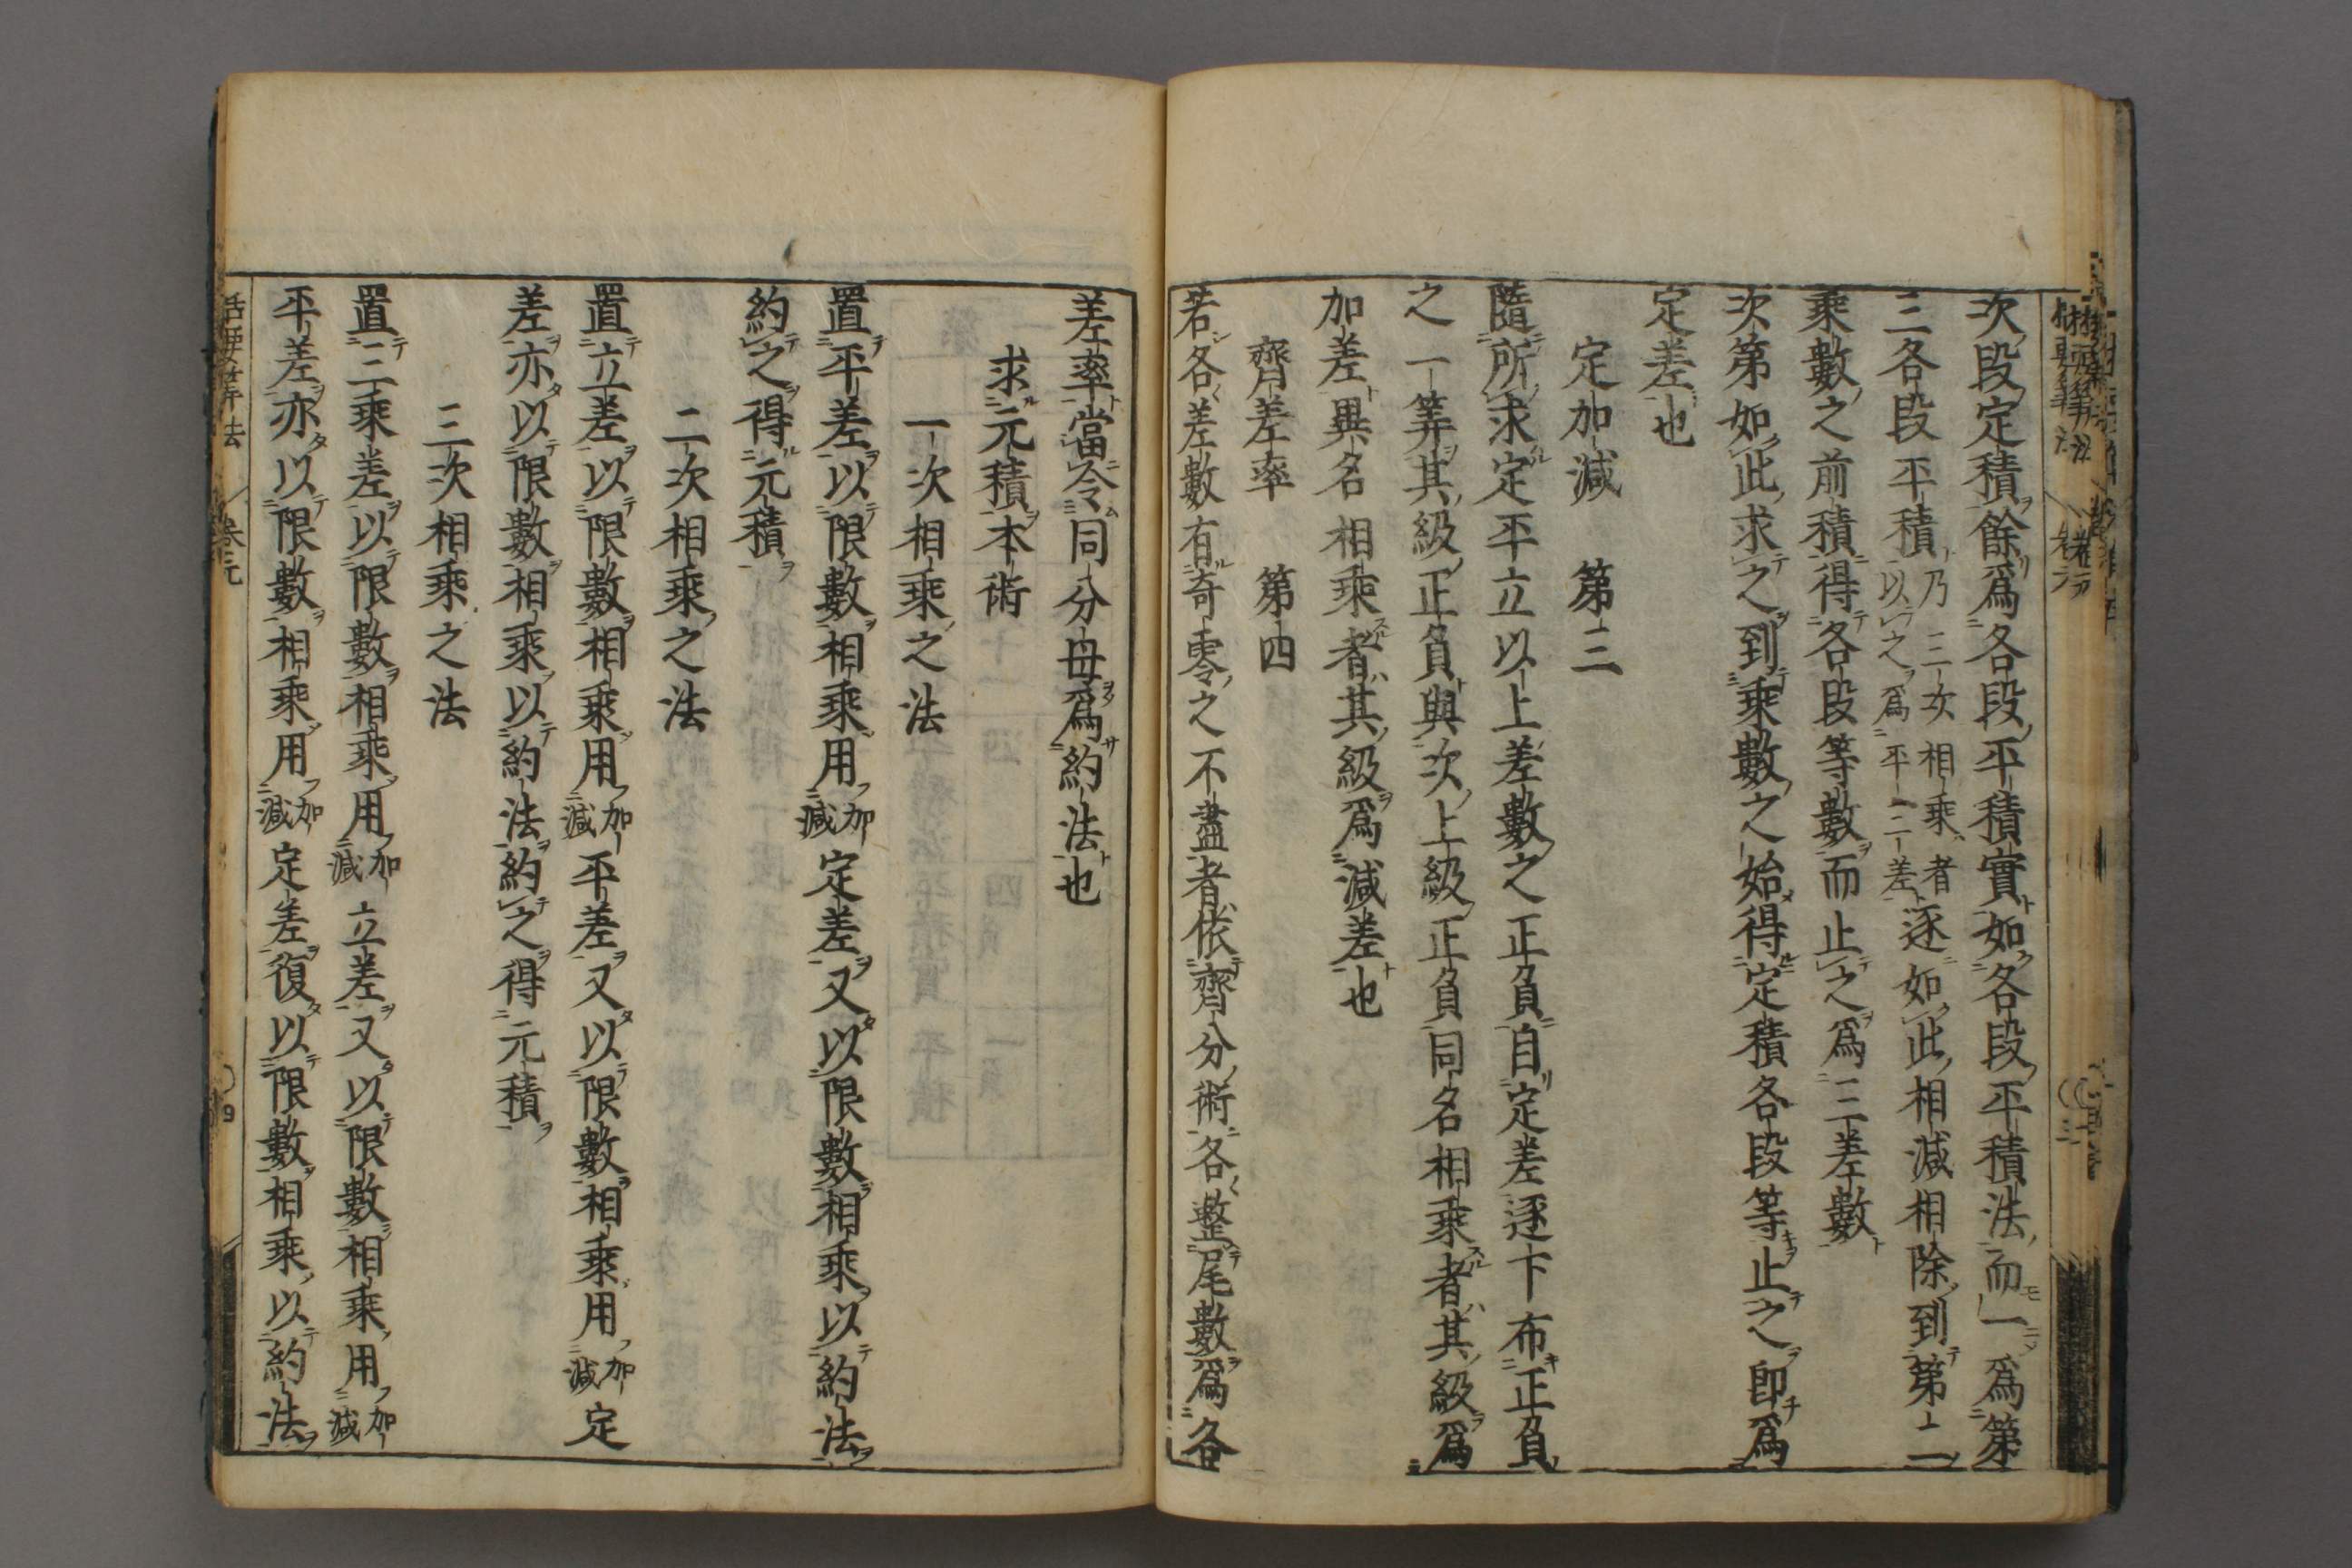 次段定積餘爲各段平積實如各段平積法而一爲第
三各段平積乃三次相乘者以之爲平二差逐如此相減相除到第二
乘數之前積得各段等數而止之爲三差數
次第如此求之到乘數之始得定積各段等止之卽爲
定差也
定加減 第三
隨所求定平立以上差數之正負自定差逐下布正負
之一筭其級正負與次上級正負同名相乘者其級爲
加差異名相乘者其級爲減差也
齊差率 第四
若各差數有奇零之不盡者依齊分術各整尾數爲各
差率當令同分母爲約法也
求元積本術
一次相乘之法
置平差以限數相乘用加減定差又以限數相乘以約法
約之得元積
二次相乘之法
置立差以限數相乘用加減平差又以限數相乘用加減定
差亦以限數相乘以約法約之得元積
三次相乘之法
置三乘差以限數相乘用加減立差又以限數相乘用加減
平差亦以限數相乘用加減定差復以限數相乘以約法
括要筭法 卷元 四